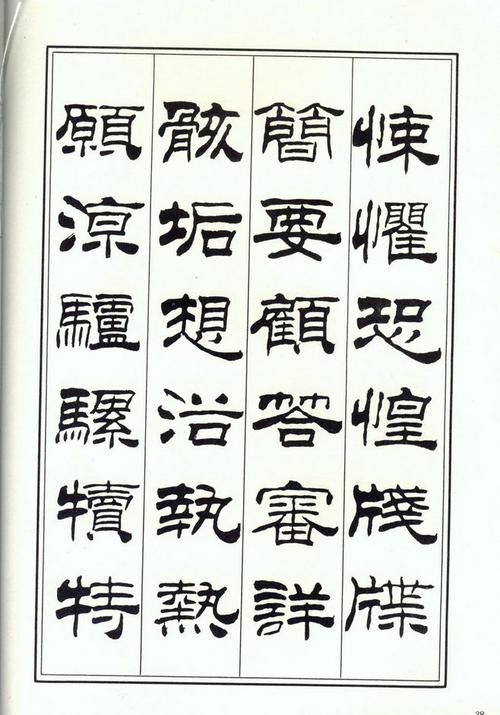 悚懼恐惶牋牒
簡要顧答審詳
骸垢想浴執熱
願涼驢騾犢特